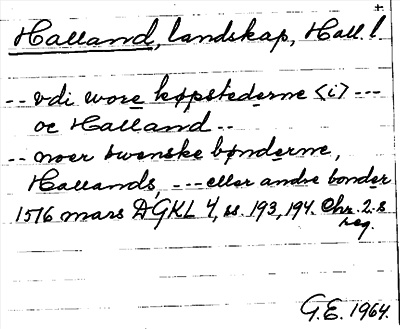 Halland, landskap, Hall. l.
-- vdi wore køpstederne <i> ---
oc Halland --
-- noer swenske bønderne,
Hallands, --- eller andre bonder
1516 mars DGKL 4, ss. 193, 194. Chr. 2.s
reg.
G.E. 1964.